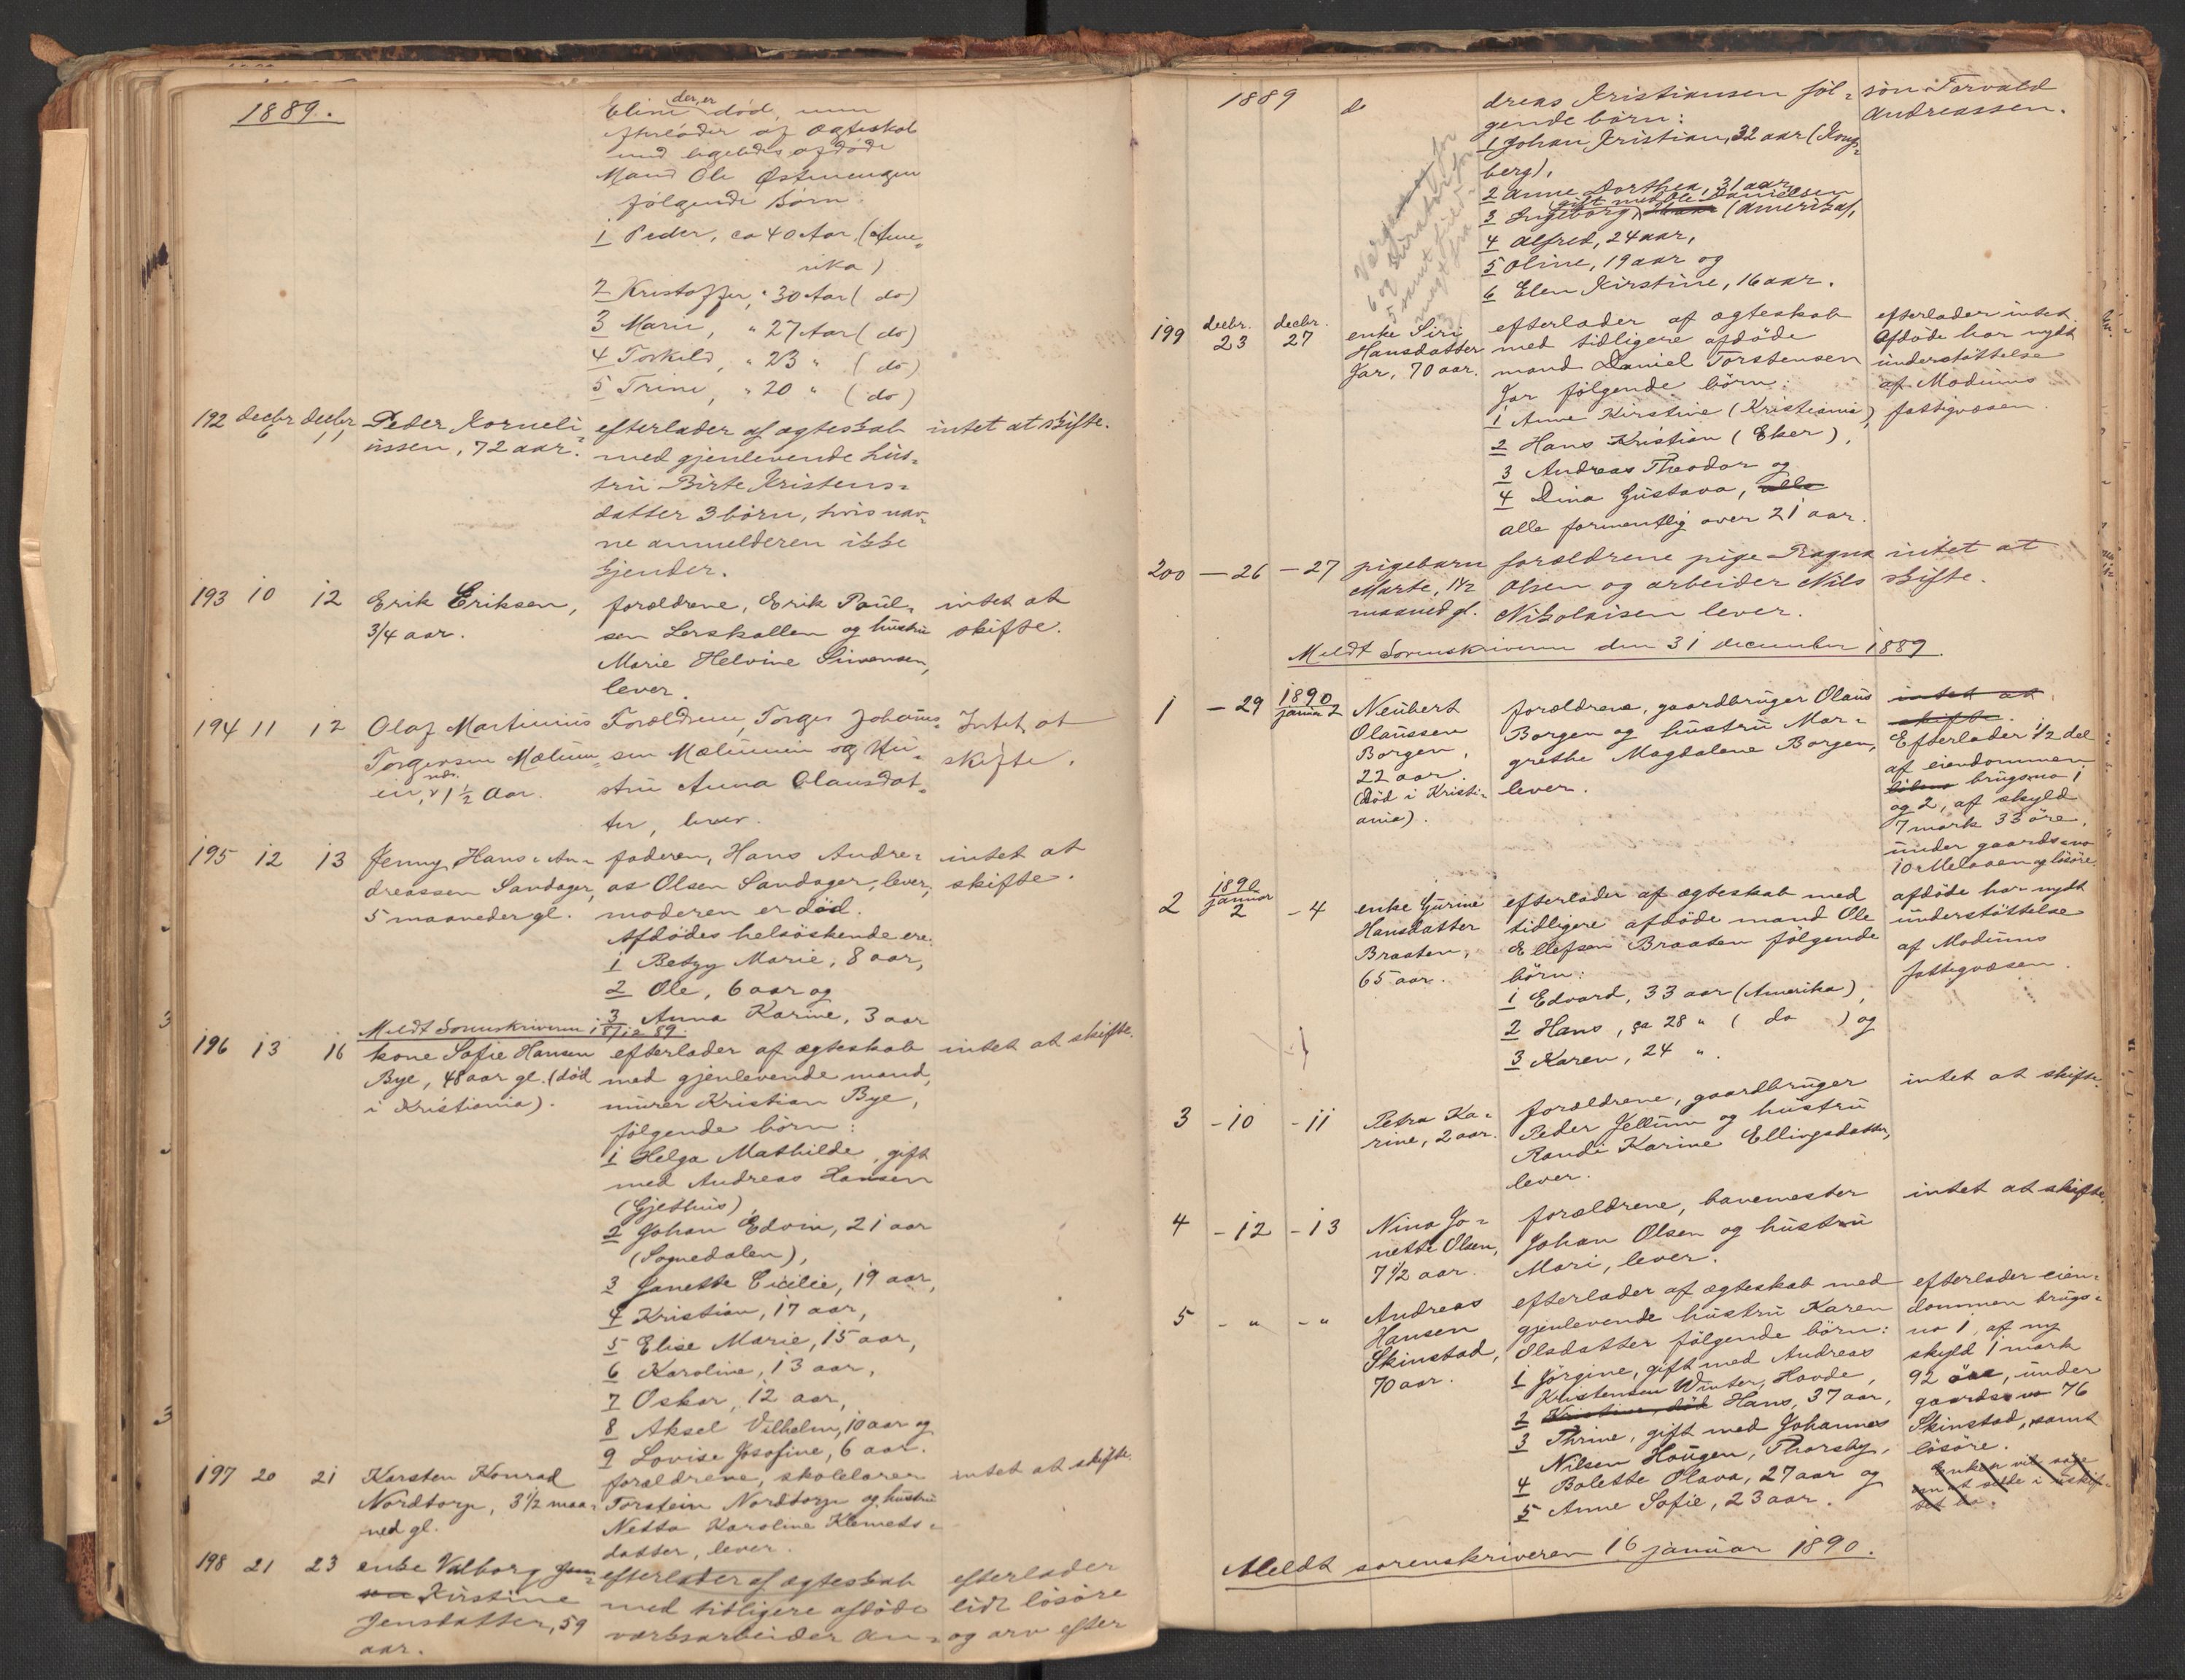 1889.
Eline der, er død, men
efterlader af ægteskab
med ligeledes afdøde
Mand Ole Østmengen
følgende Børn
1 Peder, ca 40 Aar, (Ame-
rika)
2 Kristoffer, " 30 Aar ( do)
3 Marie, " 27 Aar ( do)
4 Torkild, " 23 " ( do)
5 Trine, " 20 " ( do)
192 decbr 6 decbr 11 Peder Korneli- efterlader af ægteskab intet at skifte.
ussen, 72 aar. med gjenlevende hus-
tru Birte Kristens-
datter 3 børn, hvis nav-
ne anmelderen ikke
kjender.
193 10 12 Erik Eriksen, forældrene, Erik Paul- intet at
3/4 aar. sen Lerskallen og hustru skifte.
Marie Helvine Simensen,
lever.
194 11 12 Olaf Martinius Forældrene, Torger Johannes- Intet at
Torgersen Mælum- sen Mælumein og Hu- skifte.
ein, 1 1/2 Aar. stru Anna Olausdat-
ter, lever.
195 12 13 Jenny Hans. An- faderen, Hans Andre- intet at
dreassen Sandager, as Olsen Sandager, lever, skifte.
5 maaneder gl. moderen er død.
Afdødes helsøskende ere:
1 Betzy Marie, 8 aar,
2 Ole, 6 aar og
3 Anna Karine, 3 aar
Meldt Sorenskriveren 18/12 89.
196 13 16 kone Sofie Hansen efterlader af ægteskab intet at skifte.
Bye, 48 aar gl. (død med gjenlevende mand,
i Kristiania). murer Kristian Bye,
følgende børn:
1 Helga Mathilde, gift
med Andreas Hansen
(Gjethus),
2 Johan Edvin, 21 aar
(Sognedalen),
3 Janette Cicilie, 19 aar,
4 Kristian, 17 aar,
5 Elise Marie, 15 aar,
6 Karoline, 13 aar,
7 Oskar, 12 aar,
8 Aksel Vilhelm, 10 aar og
9 Lovise Josofine, 6 aar.
197 20 21 Karsten Konrad forældrene, skolelærer intet at skifte.
Nordtorp, 3 1/2 maa- Torstein Nordtorp og hustru
ned gl. Netta Karoline Klemets-
datter, lever.
198 21 23 enke Valborg Jen- efterlader af ægteskab efterlader
Kirstine med tidligere afdøde lidt løsøre
Jensdatter, 59 værksarbeider An- og arv efter
aar.
1889 do dreas Kristiansen føl- søn Torvald
gende børn: Andreassen.
1 Johan Kristian, 32 aar (Kongs-
berg),
2 Anne Dorthea, 31 aar
gift med Ole Danielsen
3 Ingeborg (Amerika),
4 Alfred, 24 aar,
5 Oline, 19 aar og
6 Elen Kirstine, 16 aar.
199 decbr. 23 decbr. 27 enke Siri efterlader af ægteskab efterlader intet.
Hansdatter med tidligere afdøde Afdøde har nydt
Jar, 70 aar. mand Daniel Torstensen understøttelse
Jar følgende børn: af Modums
1 Anne Kirstine (Kristiania), fattigvæsen.
2 Hans Kristian (Eker),
3 Andreas Theodor og
4 Dina Gustava, alle
alle formentlig over 21 aar.
200 - 26 - 27 pigebarn forældrene pige Ragna intet at
Marte, 1 1/2 Olsen og arbeider Nils skifte.
maaned gl. Nikolaisen lever.
Meldt Sorenskriveren den 31 december 1889.
1 - 29 1890 januar 2 Neubert forældrene, gaardbruger Olaus intet at
Olaussen Borgen og hustru Mar- skifte.
Borgen, grethe Magdalene Borgen, Efterlader 1/2 del
22 aar. lever. af eiendommen
(død i Kristi- brugsno 1
ania). og 2, af skyld
7 mark 33 øre,
under gaardsno
10 Melaaen og løsøre.
2 1890 januar 2 - 4 enke Gurine efterlader af ægteskab med afdøde har nydt
Hansdatter tidligere afdøde mand Ole understøttelse
Braaten, Ellefsen Braaten følgende af Modums
65 aar. børn: fattigvæsen.
1 Edvard, 33 aar (Amerika),
2 Hans, ca 28 " ( do ) og
3 Karen, 24 ".
3 - 10 - 11 Petra Ka- forældrene, gaardbruger intet at skifte.
rine, 2 aar. Peder Jellum og hustru
Randi Karine Ellingsdatter,
lever.
4 - 12 - 13 Nina Jo- forældrene, banemester intet at skifte.
nette Olsen, Johan Olsen og hustru
7 1/2 aar. Mari, lever.
5 - " - " Andreas efterlader af ægteskab med efterlader eien-
Hansen gjenlevende hustru Karen dommen brugs-
Skinstad, Olsdatter følgende børn: no 1, af ny
70 aar. 1 Jørgine, gift med Andreas skyld 1 mark
Kristensen Winter, Hovde, 92 øre, under
2 Kristine, død Hans, 37 aar, gaardsno 76
3 Thrine, gift med Johannes Skinstad, samt
Nilsen Haugen, Thorsby, løsøre.
4 Bolette Olava, 27 aar og Enken vil søge
5 Anne Sofie, 23 aar. om at sidde i uskif-
tet bo.
Meldt sorenskriveren 16 januar 1890.